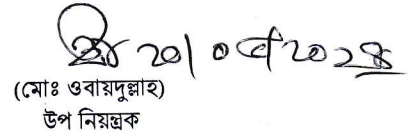 ২০।০৫।২০২৪
(মোঃ ওবায়দুল্লাহ)
উপ নিয়ন্ত্রক